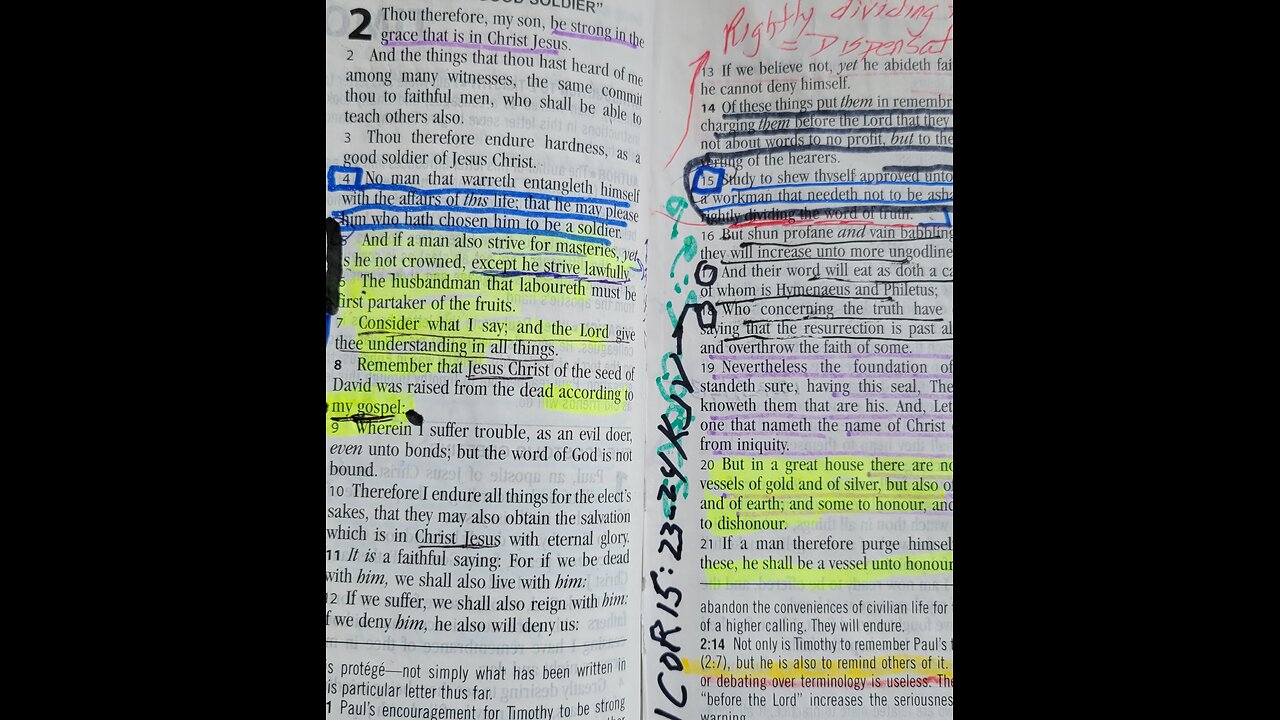 GOOD SOLDIER"
2 Thou therefore, my son, be strong in the
grace that is in Christ Jesus.
2 And the things that thou hast heard of me
among many witnesses, the same commit
thou to faithful men, who shall be able to
teach others also.
3 Thou therefore endure hardness, as a
good soldier of Jesus Christ.
4 No man that warreth entangleth himself
with the affairs of this life; that he may please
him who hath chosen him to be a soldier.
5 And if a man also strive for masteries, yet
is he not crowned, except he strive lawfully.
6 The husbandman that laboureth must be
first partaker of the fruits.
7 Consider what I say; and the Lord give
thee understanding in all things.
8 Remember that Jesus Christ of the seed of
David was raised from the dead according to
my gospel:
9 Wherein I suffer trouble, as an evil doer,
even unto bonds; but the word of God is not
bound.
10 Therefore I endure all things for the elect's
sakes, that they may also obtain the salvation
which is in Christ Jesus with eternal glory.
11 It is a faithful saying: For if we be dead
with him, we shall also live with him:
12 If we suffer, we shall also reign with him:
if we deny him, he also will deny us:
's protégé—not simply what has been written in
is particular letter thus far.
1 Paul's encouragement for Timothy to be strong
1 COR 15:23-24 KJV
Rightly dividing
= Dispensat
13 If we believe not, yet he abideth fai
he cannot deny himself.
14 Of these things put them in remembr
charging them before the Lord that they
not about words to no profit, but to the
verting of the hearers.
15 Study to shew thyself approved unto
a workman that needeth not to be ash
rightly dividing the word of truth.
16 But shun profane and vain babbling
they will increase unto more ungodline
And their word will eat as doth a ca
of whom is Hymenaeus and Philetus;
18 Who concerning the truth have
saying that the resurrection is past al
and overthrow the faith of some.
19 Nevertheless the foundation of
standeth sure, having this seal, The
knoweth them that are his. And, Let
one that nameth the name of Christ
from iniquity.
20 But in a great house there are no
vessels of gold and of silver, but also o
and of earth; and some to honour, and
to dishonour.
21 If a man therefore purge himsel
these, he shall be a vessel unto honour
abandon the conveniences of civilian life for
of a higher calling. They will endure.
2:14 Not only is Timothy to remember Paul's
(2:7), but he is also to remind others of it.
or debating over terminology is useless. The
"before the Lord" increases the seriousnes
warning.